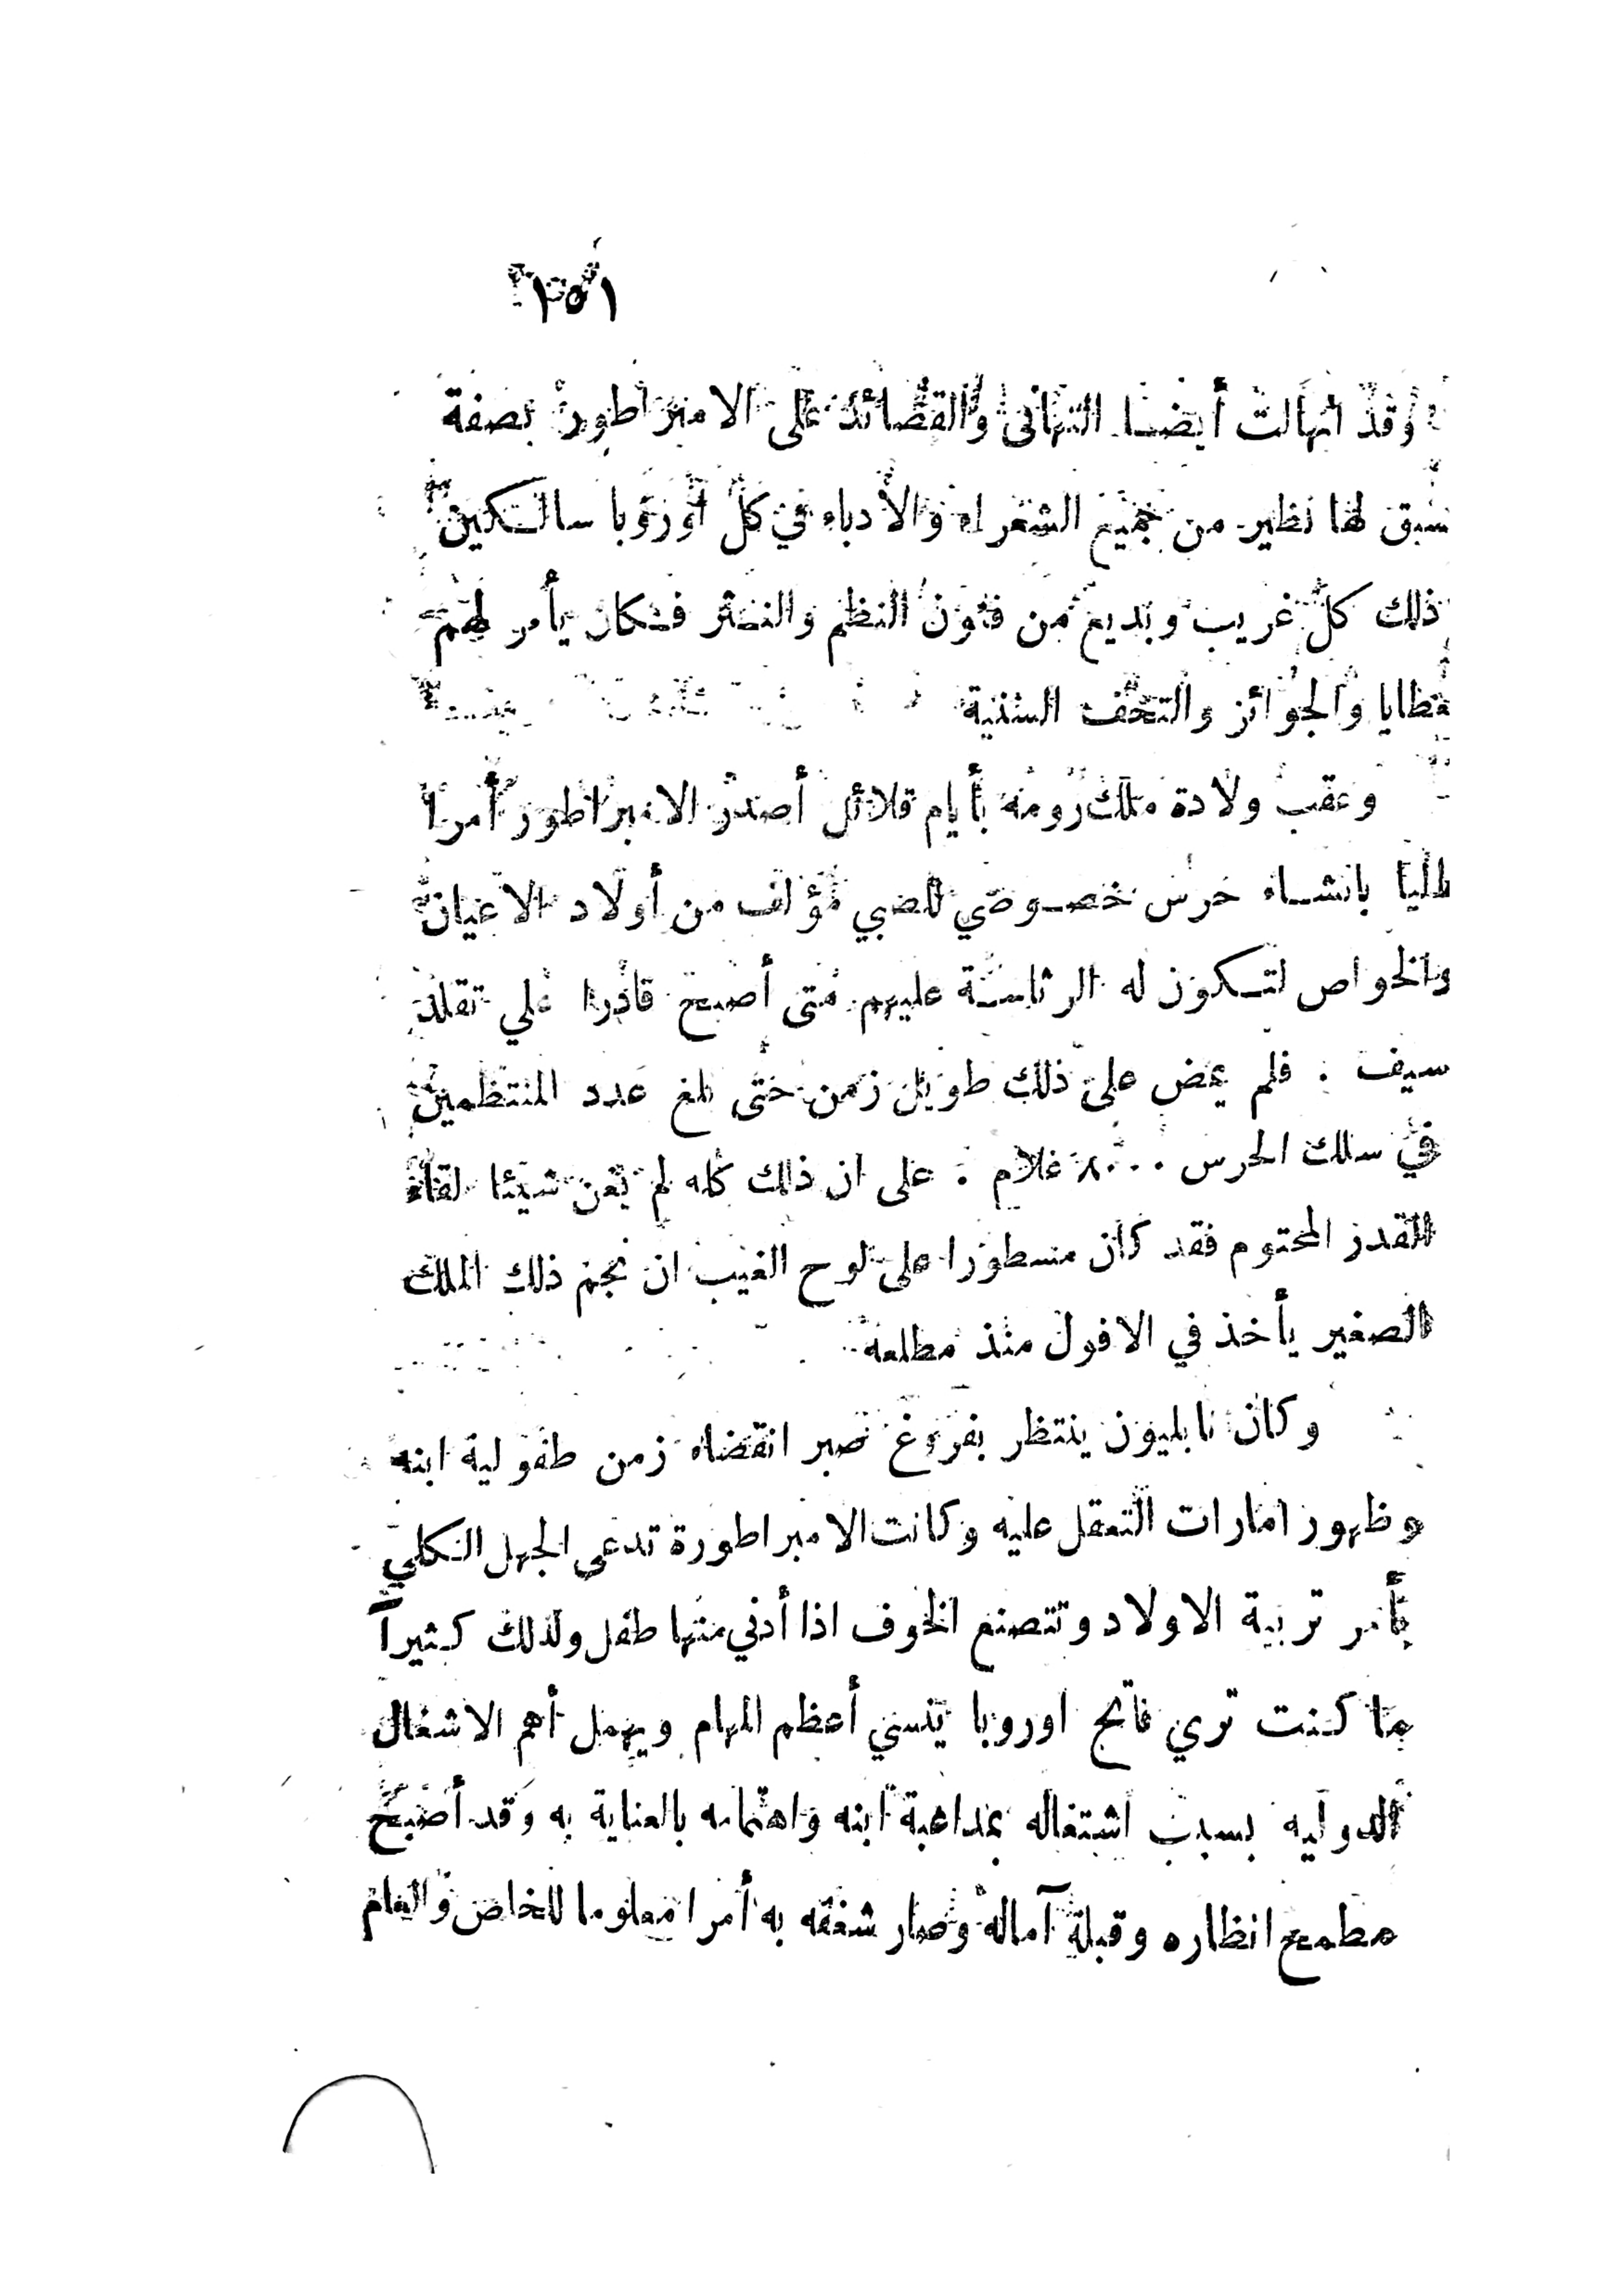 ١٥١
وقد انهالت أيضا التهانى والقصائد على الامبراطور بصفة
سبق لها نظير من جميع الشعراء والأدباء في كل أوروبا سالكين
ذلك كل غريب وبديع من فنون النظم والنثر فكان يأمر لهم
عطايا والجوائز والتحف السنية
وعقب ولادة ملك رومه بأيام قلائل أصدر الامبراطور أمرا
بانشاء حرس خصوصي للصبي مؤلف من أولاد الاعيان
والخواص لتكون له الرئاسة عليهم متى أصبح قادرا على تقلد
سيف . فلم يمض على ذلك طويل زمن حتى بلغ عدد المنتظمين
في سلك الحرس ٨٠٠٠ غلام . على ان ذلك كله لم يغن شيئا لقاء
القدر المحتوم فقد كان مسطورا على لوح الغيب ان نجم ذلك الملك
الصغير يأخذ في الافول منذ مطلعه
وكان نابليون ينتظر بفروغ صبر انقضاء زمن طفولية ابنه
وظهور امارات التعقل عليه وكانت الامبراطورة تدعى الجهل الكلي
بأمر تربية الاولاد وتتصنع الخوف اذا أدني منها طفل ولذلك كثيراً
ما كنت تري فاتح اوروبا ينسي أعظم المهام ويهمل أهم الاشغال
الدوليه بسبب اشتغاله بمداعبة ابنه واهتمامه بالعناية به وقد أصبح
مطمح انظاره وقبلة آماله وصار شغفه به أمرا معلوما للخاص والعام